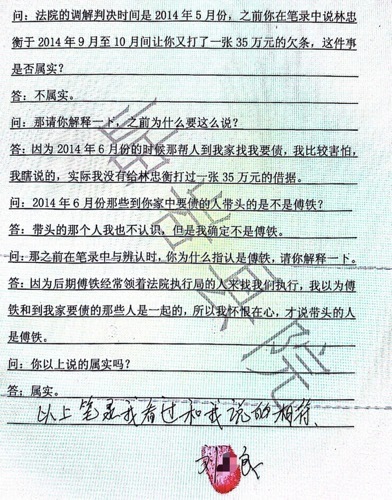 问：法院的调解判决时间是 2014 年 5 月份，之前你在笔录中说林忠
衡于 2014 年 9 月至 10 月间让你又打了一张 35 万元的欠条，这件事
是否属实？
答：不属实。
问：那请你解释一下，之前为什么要这么说？
答：因为 2014 年 6 月份的时候那帮人到我家找我要债，我比较害怕，
我瞎说的，实际我没有给林忠衡打过一张 35 万元的借据。
问：2014 年 6 月份那些到你家中要债的人带头的是不是傅铁？
答：带头的那个人我也不认识，但是我确定不是傅铁。
问：那之前在笔录中与辨认时，你为什么指认是傅铁，请你解释一下。
答：因为后期傅铁经常领着法院执行局的人来找我们执行，我以为傅
铁和到我家要债的那些人是一起的，所以我怀恨在心，才说带头的人
是傅铁。
问：你以上说的属实吗？
答：属实。
以上笔录我看过和我说的相符、
良
院